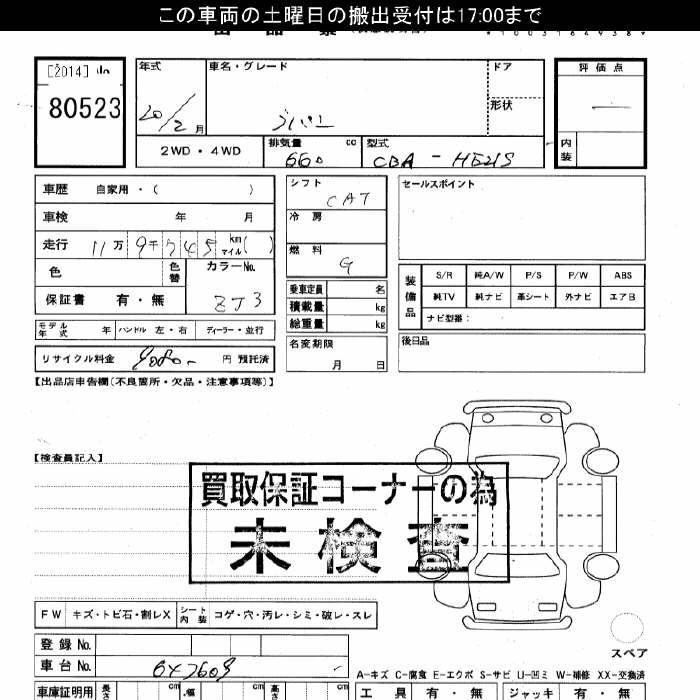 この車両の土曜日の搬出受付は17:00まで
[2014]
80523
年式 車名・グレード ドア
20/2月 形状
2WD・4WD 排気量 660 cc 型式 CBA -
評価点
内装
車歴 自家用・( )
車検 年 月
走行 11万 9千 7 4 5 km マイル( )
色 色替 カラーNo. ZJ3
保証書 有・無
モデル年式 年 ハンドル 左・右 ディーラー・並行
リサイクル料金 円 預託済
シフト CAT
冷房
燃料 G
乗車定員 名
積載量 kg
総重量 kg
名変期限
月 日
セールスポイント
装備品 S/R 純A/W P/S P/W ABS
純TV 純ナビ 革シート 外ナビ エアB
ナビ型番:
後日品
【出品店申告欄(不良箇所・欠品・注意事項等)】
【検査員記入】
買取保証コーナーの為
未検査
FW キズ・トビ石・割レX シート内装 コゲ・穴・汚レ・シミ・破レ・スレ
登録 No.
車台 No.
スペア
A-キズ C-腐食 E-エクボ S-サビ U-凹ミ W-補修 XX-交換済
車庫証明用 長さ cm 幅 cm 高さ cm
工具 有・無 ジャッキ 有・無